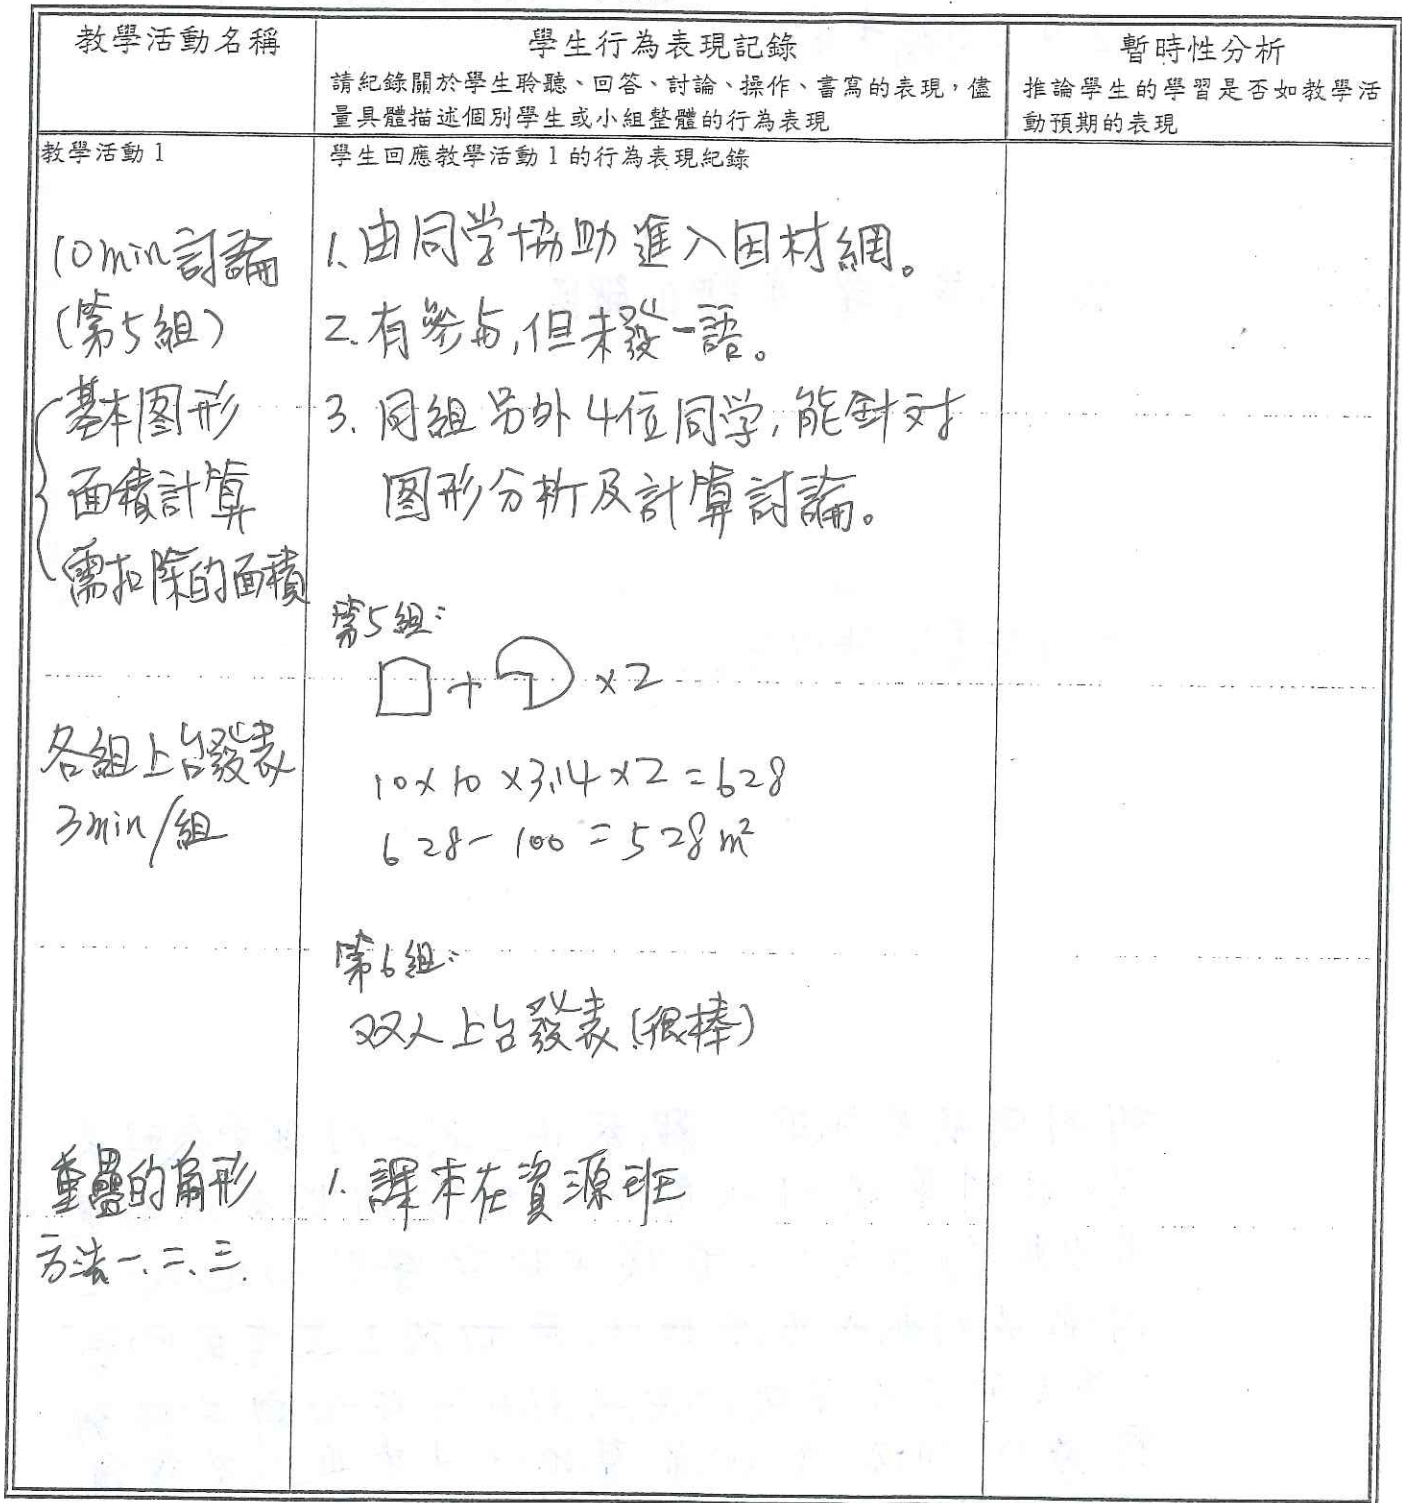 教學活動名稱
學生行為表現記錄
請紀錄關於學生聆聽、回答、討論、操作、書寫的表現,儘
量具體描述個別學生或小組整體的行為表現
暫時性分析
推論學生的學習是否如教學活
動預期的表現
教學活動1
學生回應教學活動1的行為表現紀錄
10min討論
(第5組)
基本图形
面積計算
需扣除的面積
1. 由同学協助進入因材網。
2. 有參与,但未發一語。
3. 同組另外4位同学,能針对
图形分析及計算討論。
第5組:
+ ×2
10×10×3.14×2=628
628-100=528m²
各組上台發表
3min/組
第6組:
双人上台發表(很棒)
重疊的扇形
方法一、二、三.
1. 課本在資源班